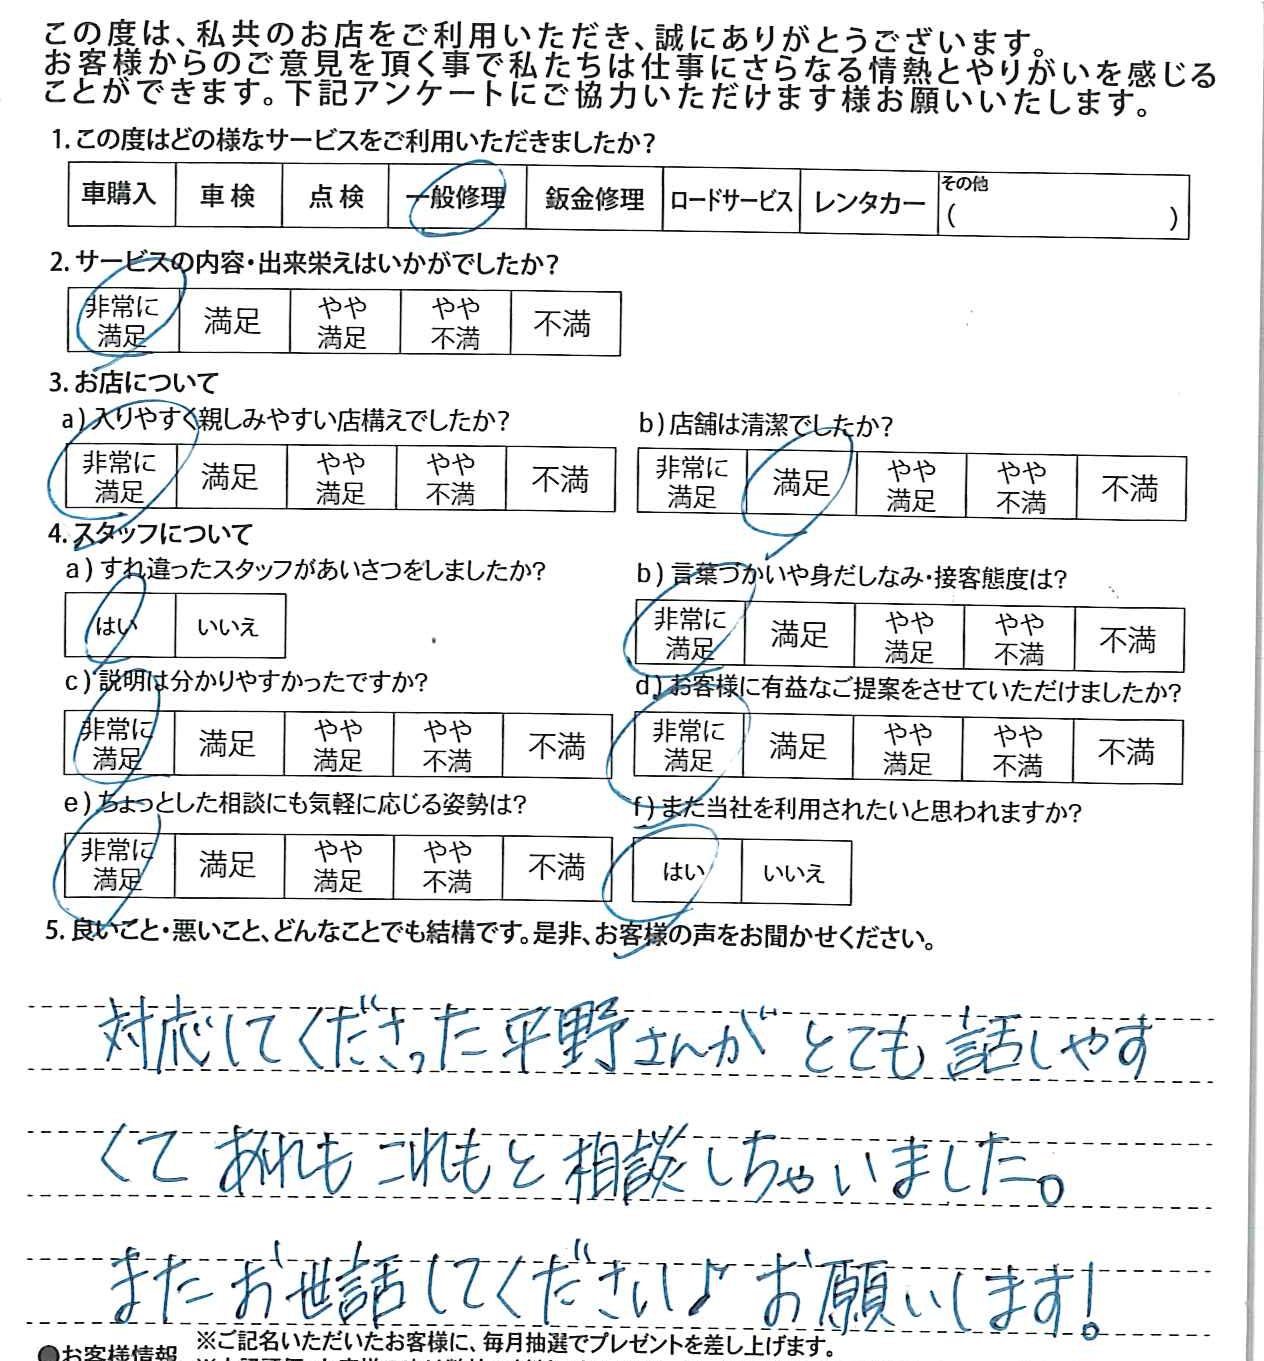 この度は、私共のお店をご利用いただき、誠にありがとうございます。
お客様からのご意見を頂く事で私たちは仕事にさらなる情熱とやりがいを感じる
ことができます。下記アンケートにご協力いただけます様お願いいたします。
1.この度はどの様なサービスをご利用いただきましたか?
車購入 車検 点検 一般修理 鈑金修理 ロードサービス レンタカー その他 ( )
2.サービスの内容・出来栄えはいかがでしたか?
非常に満足 満足 やや満足 やや不満 不満
3.お店について
a)入りやすく親しみやすい店構えでしたか?
非常に満足 満足 やや満足 やや不満 不満
b)店舗は清潔でしたか?
非常に満足 満足 やや満足 やや不満 不満
4.スタッフについて
a)すれ違ったスタッフがあいさつをしましたか?
はい いいえ
b)言葉づかいや身だしなみ・接客態度は?
非常に満足 満足 やや満足 やや不満 不満
c)説明は分かりやすかったですか?
非常に満足 満足 やや満足 やや不満 不満
d)お客様に有益なご提案をさせていただけましたか?
非常に満足 満足 やや満足 やや不満 不満
e)ちょっとした相談にも気軽に応じる姿勢は?
非常に満足 満足 やや満足 やや不満 不満
f)また当社を利用されたいと思われますか?
はい いいえ
5.良いこと・悪いこと、どんなことでも結構です。是非、お客様の声をお聞かせください。
対応してくださった平野さんが とても 話しやす
くて あれも これもと 相談しちゃいました。
また お世話してください♪ お願いします!
●お客様情報 ※ご記名いただいたお客様に、毎月抽選でプレゼントを差し上げます。